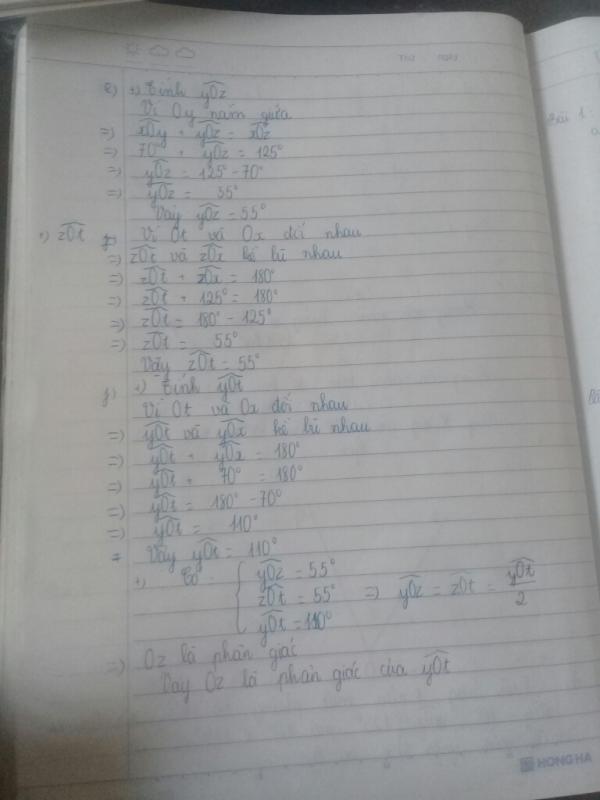 Thứ Ngày
e) +) Tính yOz
Vì Oy nằm giữa
=) xOy + yOz = xOz
=) 70° + yOz = 125°
=) yOz = 125° - 70°
=) yOz = 55°
Vậy yOz = 55°
+) zOt Vì Ot và Ox đối nhau
=) zOt và zOx kề bù nhau
=) zOt + zOx = 180°
=) zOt + 125° = 180°
=) zOt = 180° - 125°
=) zOt = 55°
Vậy zOt = 55°
f) +) Tính yOt
Vì Ot và Ox đối nhau
=) yOt và yOx kề bù nhau
=) yOt + yOx = 180°
=) yOt + 70° = 180°
=) yOt = 180° - 70°
=) yOt = 110°
= Vậy yOt = 110°
+) Có: { yOz = 55°
zOt = 55° =) yOz = zOt = yOt / 2
yOt = 110°
=) Oz là phân giác
Vậy Oz là phân giác của yOt
Bài 1:
a
HONG HA